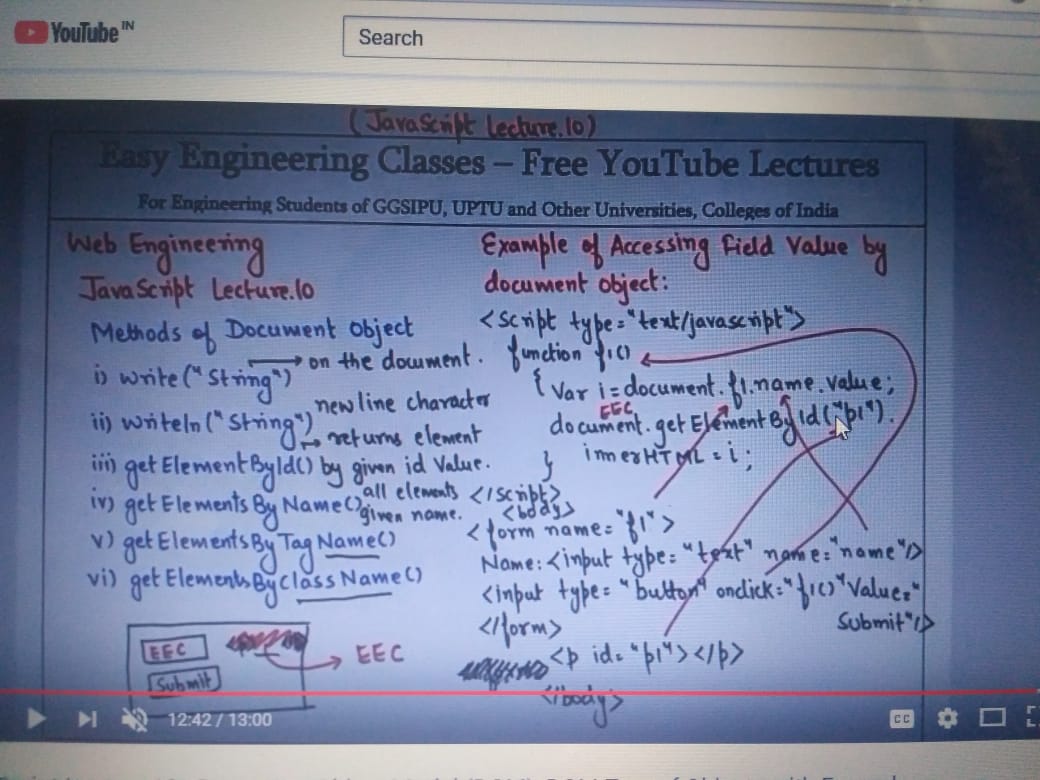 YouTube IN
Search
(JavaScript Lecture.10)
Easy Engineering Classes – Free YouTube Lectures
For Engineering Students of GGSIPU, UPTU and Other Universities, Colleges of India
Web Engineering
JavaScript Lecture.10
Methods of Document Object
i) write("String") → on the document.
ii) writeln("String") new line character
iii) getElementById() → returns element by given id Value.
iv) getElementsByName() all elements given name.
v) getElementsByTagName()
vi) getElementsByClassName()
EEC
Submit
EEC
Example of Accessing Field Value by
document object:
<script type="text/javascript">
function f1()
{ Var i=document.f1.name.value;
EEC
document.getElementById("p1").
innerHTML = i;
}
</script>
<body>
<form name="f1">
Name:<input type="text" name="name"/>
<input type="button" onclick="f1()" Value="
Submit"/>
</form>
<p id="p1"></p>
</body>
12:42 / 13:00
CC